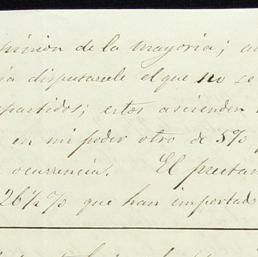 opinion de la mayoria; au
ia disputarele el que no se
partidos; estos ascienden
en mi poder otro de 5%
ocurrencia. El prestam
26½% que han importado